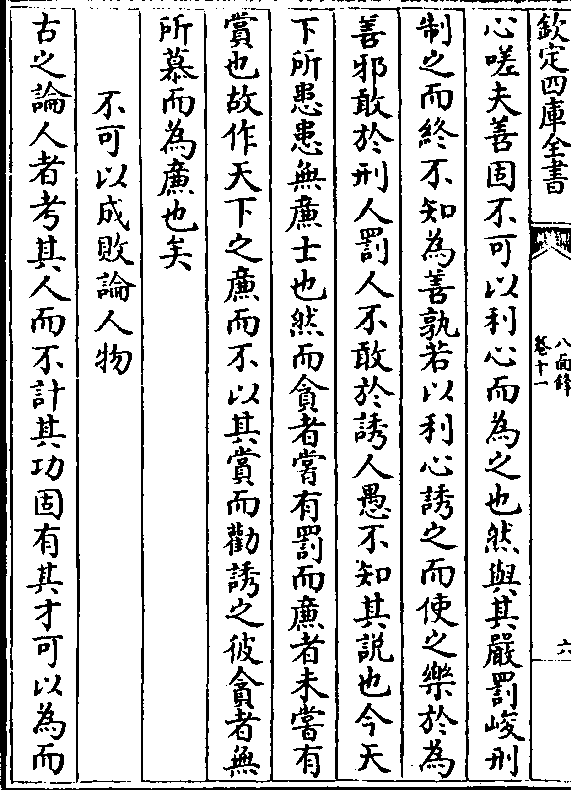 欽定四庫全書
八面鋒
卷十一
六
心嗟夫善固不可以利心而為之也然與其嚴罰峻刑
制之而終不知為善孰若以利心誘之而使之樂於為
善邪敢於刑人罰人不敢於誘人愚不知其說也今天
下所患患無廉士也然而貪者嘗有罰而廉者未嘗有
賞也故作天下之廉而不以其賞而勸誘之彼貪者無
所慕而為廉也矣
不可以成敗論人物
古之論人者考其人而不計其功固有其才可以為而